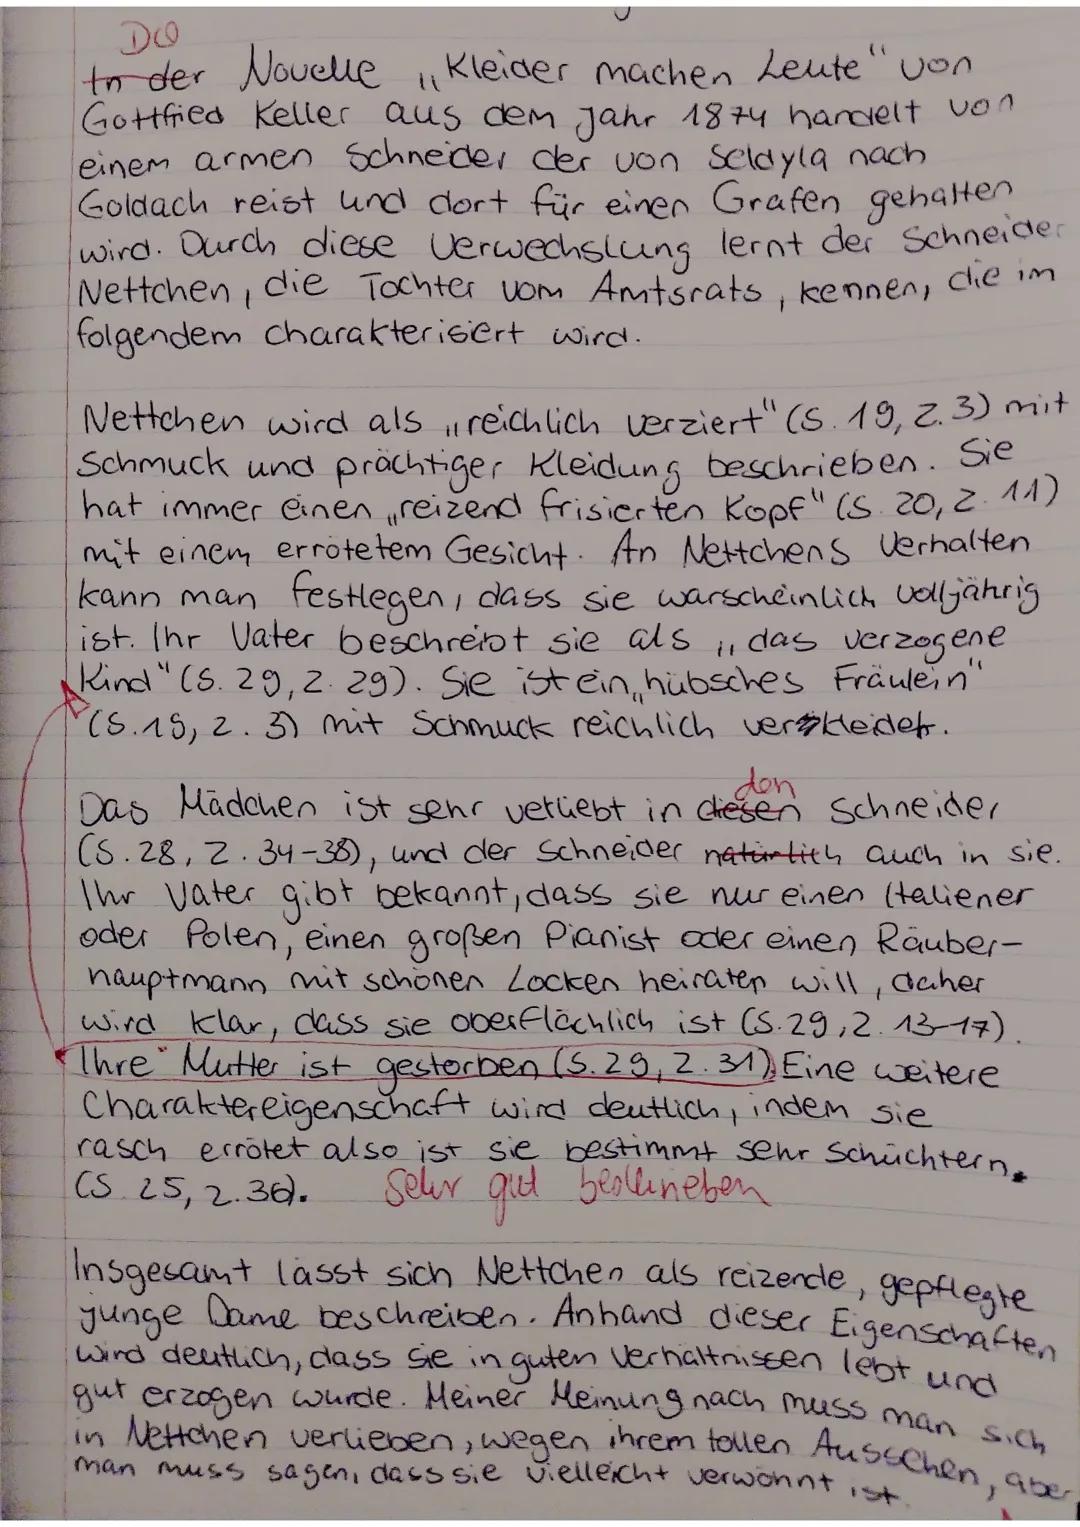 Die
In der Novelle „Kleider machen Leute" von
Gottfried Keller aus dem Jahr 1874 handelt von
einem armen Schneider der von Seldyla nach
Goldach reist und dort für einen Grafen gehalten
wird. Durch diese Verwechslung lernt der Schneider
Nettchen, die Tochter vom Amtsrats, kennen, die im
folgendem charakterisiert wird.
Nettchen wird als „reichlich verziert" (S. 19, Z. 3) mit
Schmuck und prächtiger Kleidung beschrieben. Sie
hat immer einen „reizend frisierten Kopf" (S. 20, Z. 11)
mit einem errötetem Gesicht. An Nettchens Verhalten
kann man festlegen, dass sie warscheinlich volljährig
ist. Ihr Vater beschreibt sie als „das verzogene
Kind" (S. 29, Z. 29). Sie ist ein „hübsches Fräulein"
(S. 19, Z. 3) mit Schmuck reichlich verkleidet.
den
Das Mädchen ist sehr verliebt in diesen Schneider
(S. 28, Z. 34-38), und der Schneider natürlich auch in sie.
Ihr Vater gibt bekannt, dass sie nur einen Italiener
oder Polen, einen großen Pianist oder einen Räuber-
hauptmann mit schönen Locken heiraten will, daher
wird klar, dass sie oberflächlich ist (S. 29, Z. 13-17).
Ihre Mutter ist gestorben (S. 29, Z. 31). Eine weitere
Charaktereigenschaft wird deutlich, indem sie
rasch errötet also ist sie bestimmt sehr schüchtern.
(S. 25, Z. 36). Sehr gut beschrieben
Insgesamt lässt sich Nettchen als reizende, gepflegte
junge Dame beschreiben. Anhand dieser Eigenschaften
wird deutlich, dass sie in guten Verhältnissen lebt und
gut erzogen wurde. Meiner Meinung nach muss man sich
in Nettchen verlieben, wegen ihrem tollen Aussehen, aber
man muss sagen, dass sie vielleicht verwöhnt ist.